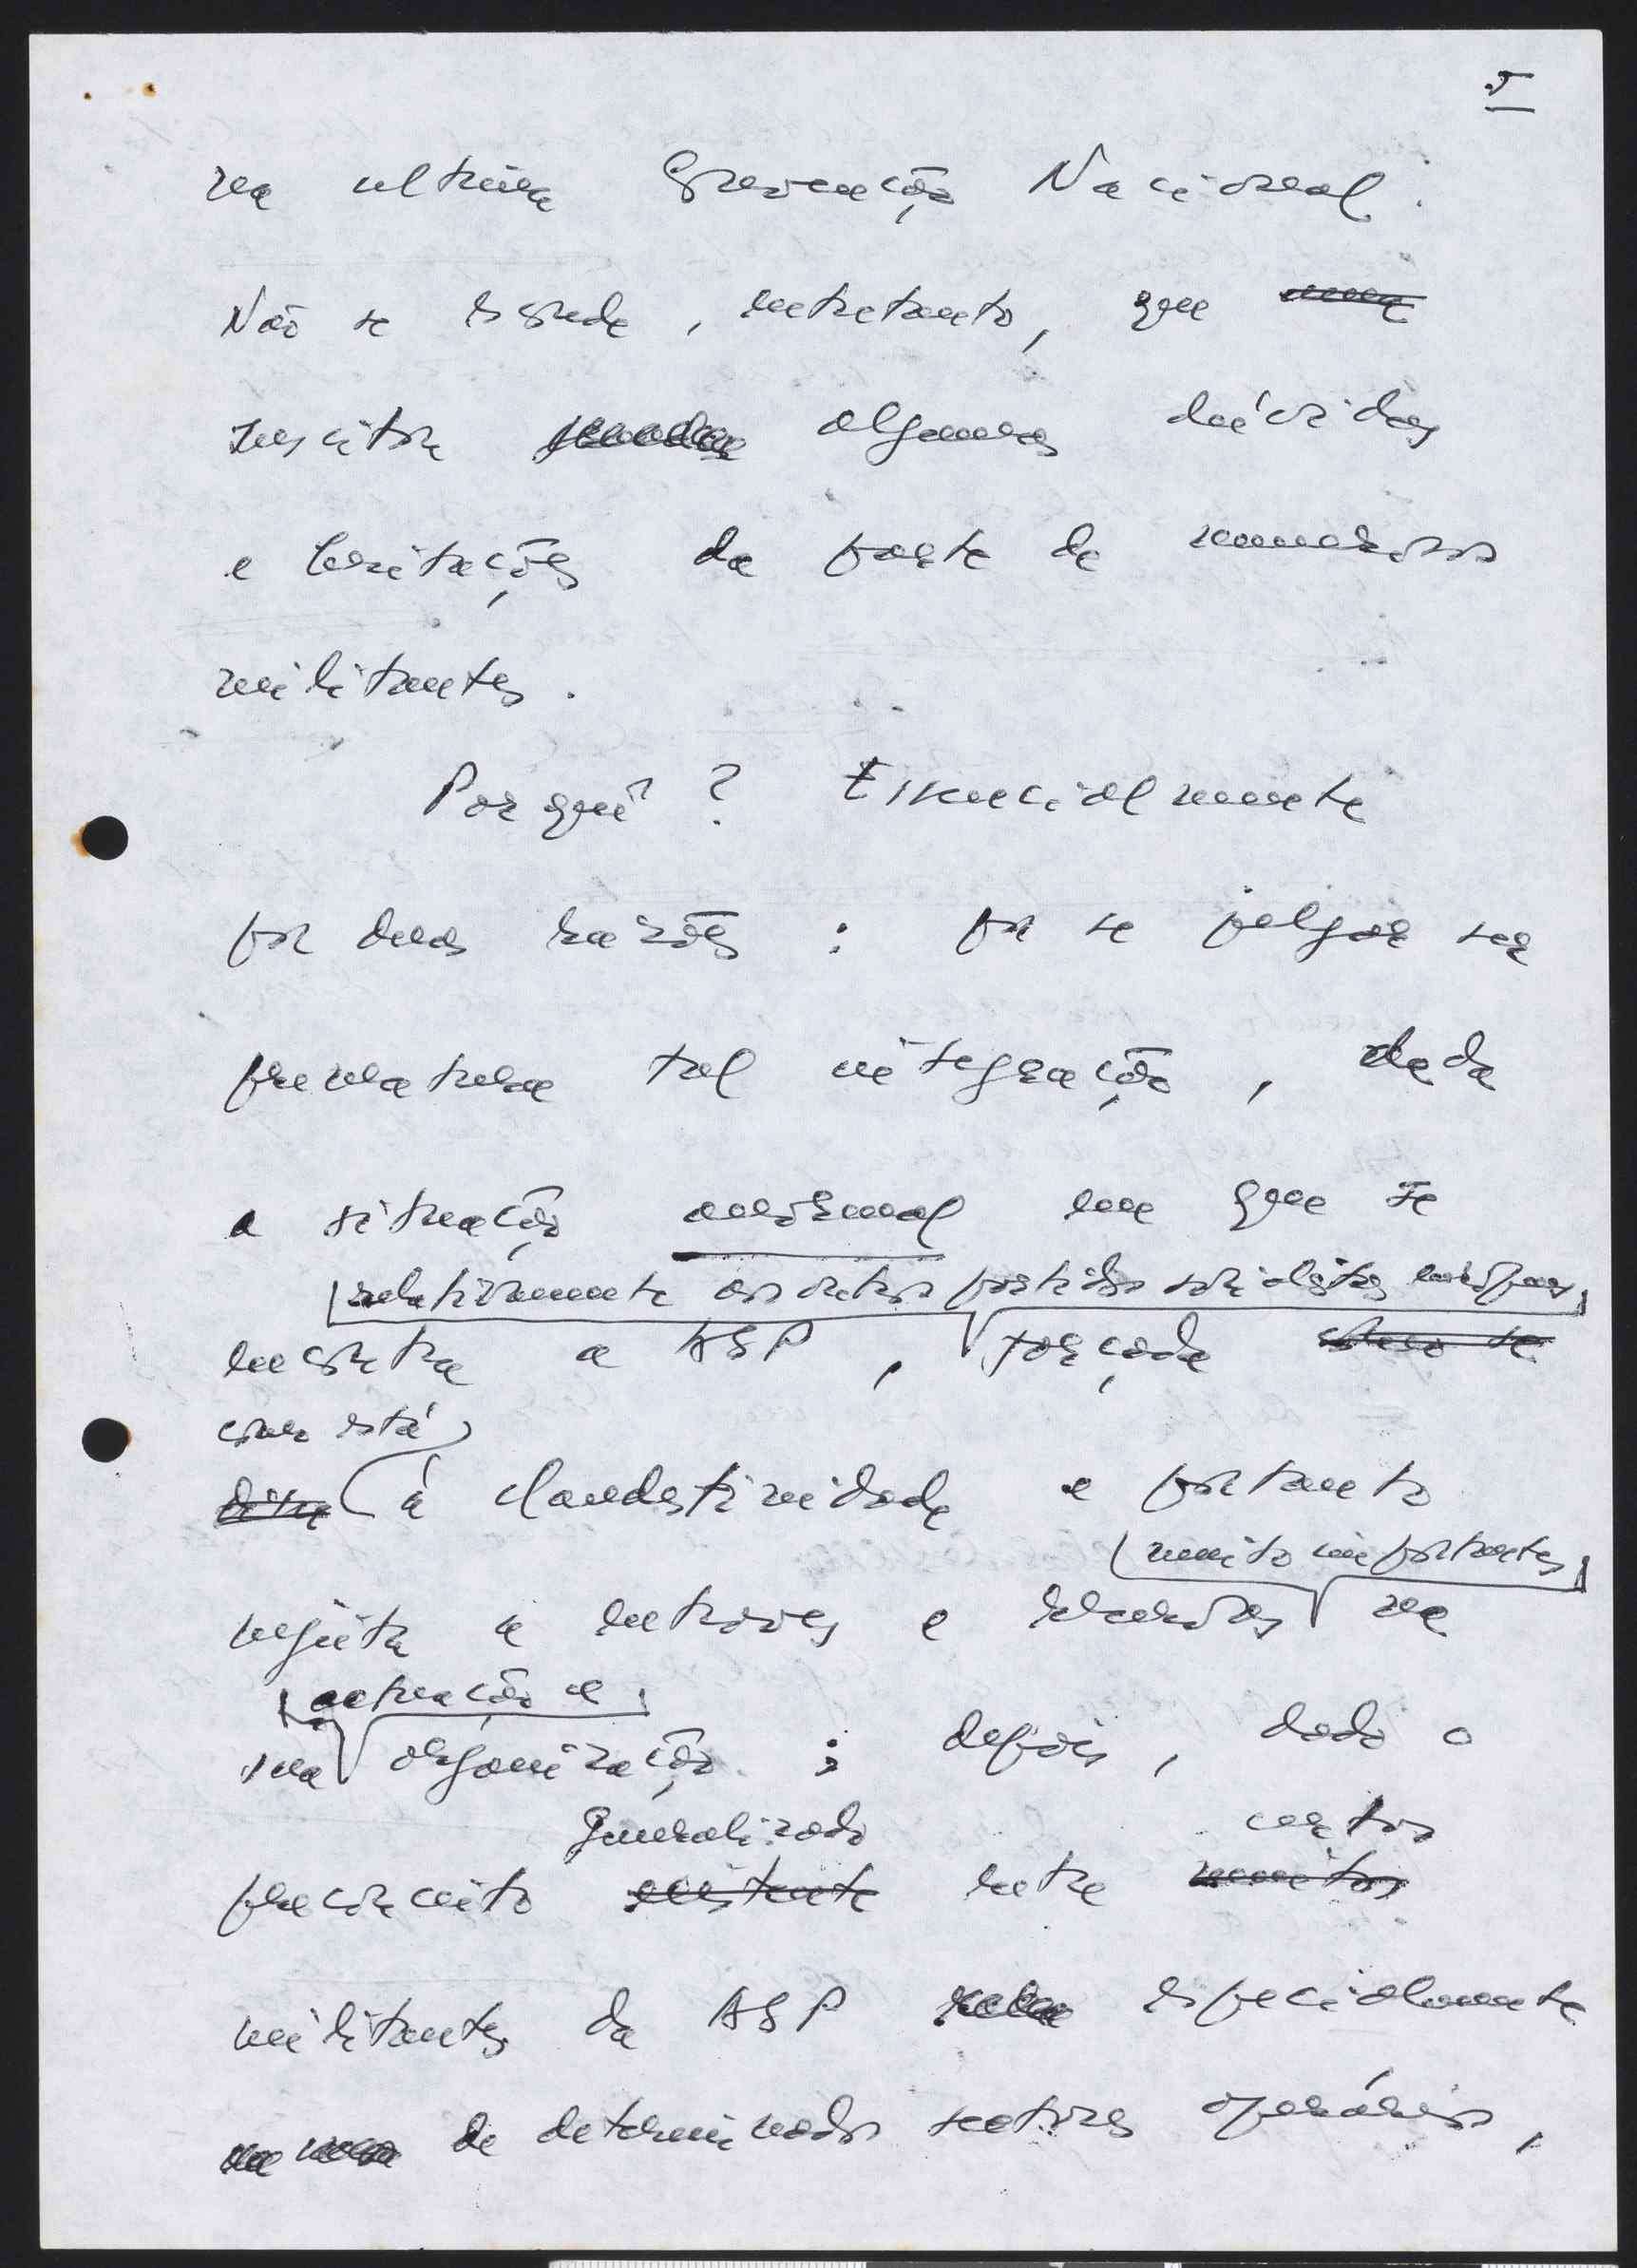 5
na ultima Convenção Nacional.
Não se esconde, entretanto, que
suscitou algumas dúvidas
e hesitações da parte de numerosos
militantes.
Porquê? Essencialmente
por duas razões: por se julgar ser
prematura tal integração, dada
a situação anormal em que se
relativamente aos outros partidos socialistas europeus
encontra a ASP, forçada
como está
à clandestinidade e portanto
muito importantes
sujeita a entraves e na
actuação e
sua organização; depois, dado o
generalizado certos
preconceito existente entre muitos
militantes da ASP especialmente
de determinados sectores operários,